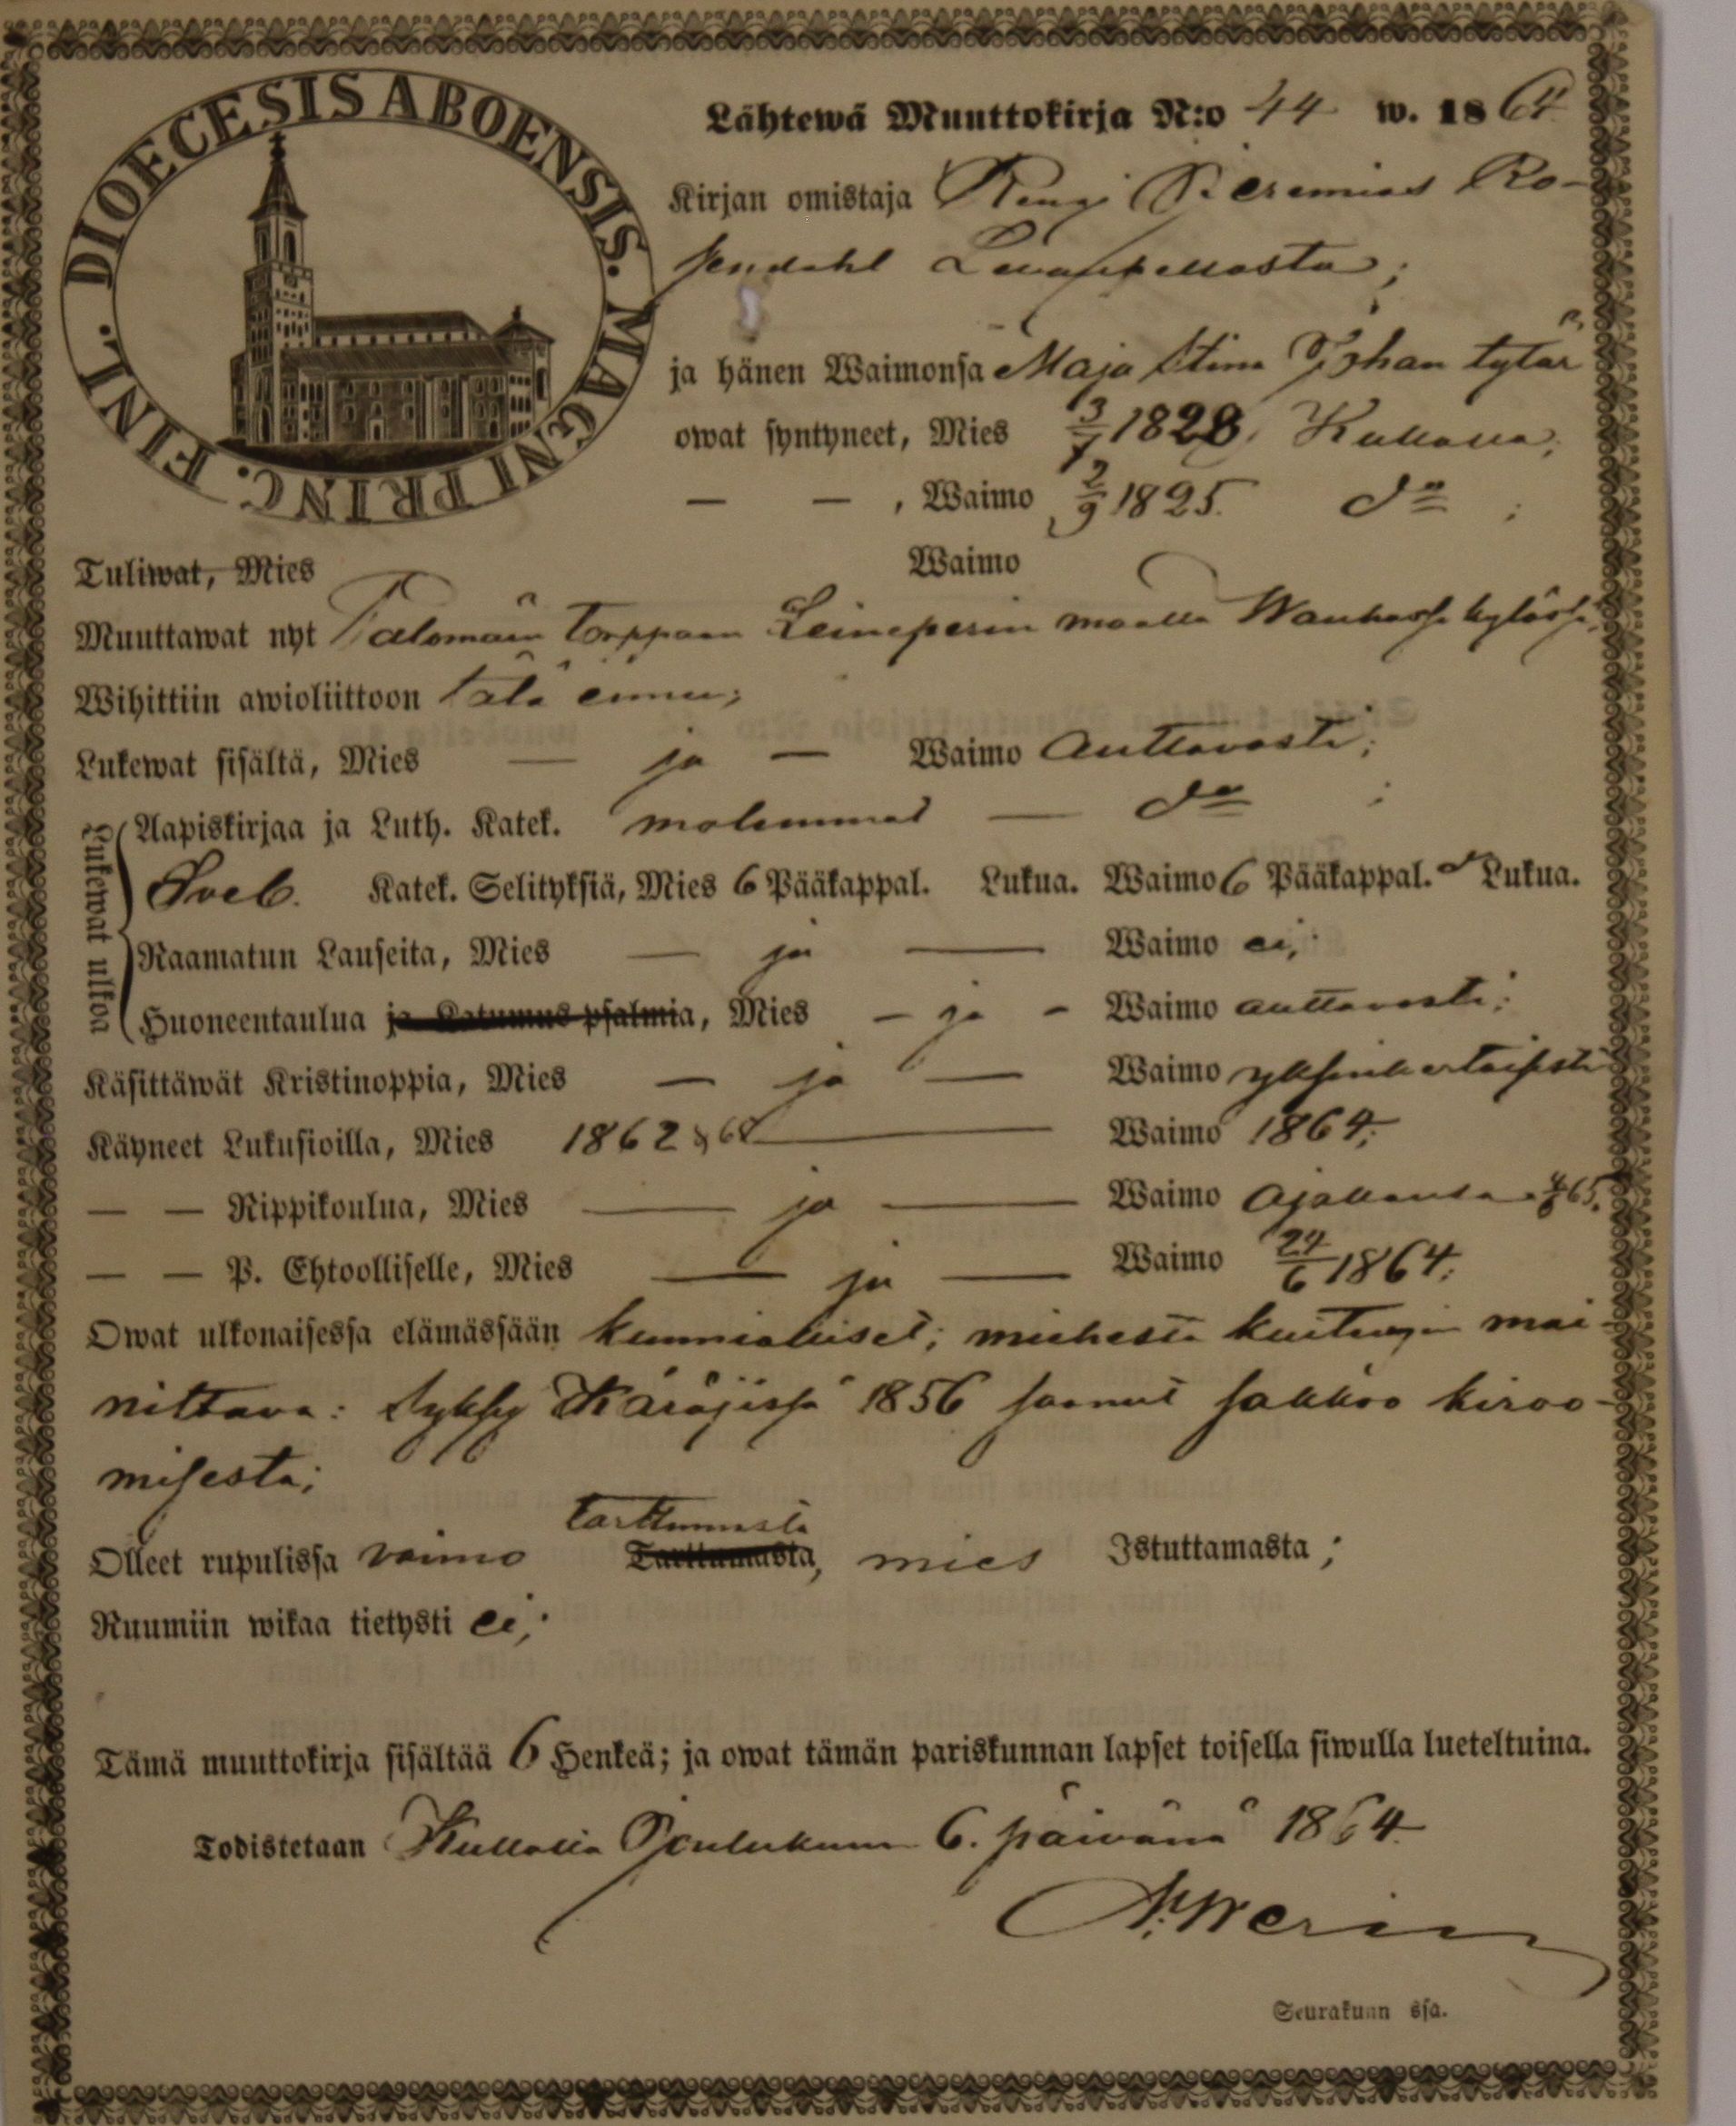 DIOECESIS ABOENSIS. MAGNI PRINC. FINL.
Lähtewä Muuttokirja N:o 44 w. 1864
Kirjan omistaja Rengi Jeremias Ro-
sendahl Levanpellosta;
ja hänen Waimonsa Maja Stina Johan tytär
owat syntyneet, Mies 3/7 1828, Kullaalla;
— — , Waimo 2/9 1825. do ;
Tuliwat, Mies Waimo
Muuttawat nyt Talomäin torppaan Leineperin maalla Wanhassa kylässä;
Wihittiin awioliittoon tätä ennen;
Lukewat sisältä, Mies — ja — Waimo auttavasti;
Lukewat ulkoa
Aapiskirjaa ja Luth. Katek. molemmat — do ;
Sveb. Katek. Selityksiä, Mies 6 Pääkappal. Lukua. Waimo 6 Pääkappal. Lukua.
Raamatun Lauseita, Mies — ja — Waimo ei;
Huoneentaulua ja Katumus psalmia, Mies — ja — Waimo auttavasti;
Käsittäwät Kristinoppia, Mies — ja — Waimo yksinkertaisesti
Käyneet Lukusioilla, Mies 1862 & 64 — Waimo 1864;
— — Rippikoulua, Mies — ja — Waimo ajallansa
— — P. Ehtoolliselle, Mies — ja — Waimo 24/6 1864;
Owat ulkonaisessa elämässään kunnialliset; miehestä kuitengin mai-
nittava: Syksy Käräjissä 1856 saanut sakkoo kiroo-
misesta;
tarttumasta
Olleet rupulissa vaimo Tarttumasta, mies Istuttamasta;
Ruumiin wikaa tietysti ei;
Tämä muuttokirja sisältää 6 Henkeä; ja owat tämän pariskunnan lapset toisella siwulla lueteltuina.
Todistetaan Kullaalla Joulukuun 6. päivänä 1864.
Seurakunn ssa.